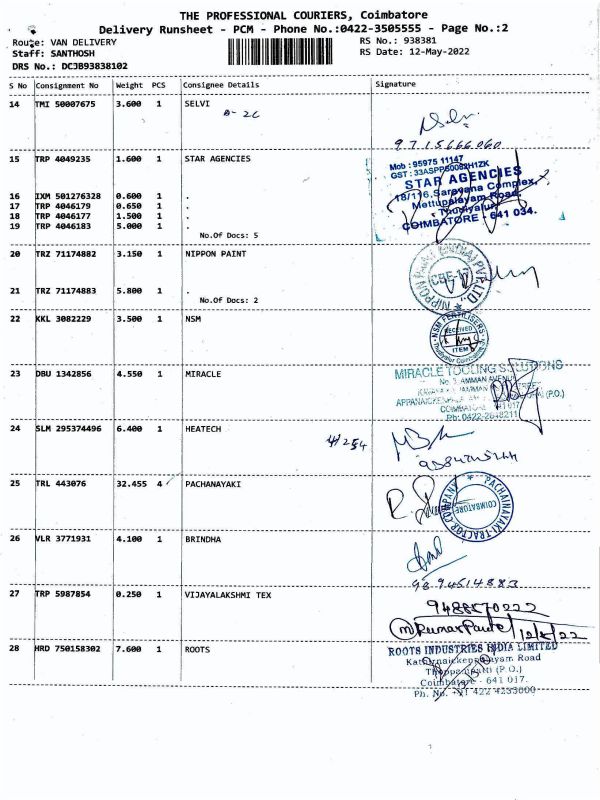 THE PROFESSIONAL COURIERS, Coimbatore
Delivery Runsheet - PCM - Phone No.:0422-3505555 - Page No.:2
Route: VAN DELIVERY RS No.: 938381
Staff: SANTHOSH RS Date: 12-May-2022
DRS No.: DCJB93838102
S No Consignment No Weight PCS Consignee Details Signature
14 TMI 50007675 3.600 1 SELVI
9715666060
15 TRP 4049235 1.600 1 STAR AGENCIES
Mob : 95975 11147
GST : 33ASPPS0082H1ZK
STAR AGENCIES
18/116, Saravana Complex,
Mettupalayam Road,
Thudiyalur,
COIMBATORE - 641 034.
16 IXM 501276328 0.600 1 .
17 TRP 4046179 0.650 1 .
18 TRP 4046177 1.500 1 .
19 TRP 4046183 5.000 1 .
No.Of Docs: 5
20 TRZ 71174882 3.150 1 NIPPON PAINT
21 TRZ 71174883 5.800 1 .
No.Of Docs: 2
22 KKL 3082229 3.500 1 NSM
NSM FERTILISERS
RECEIVED
ITEM
23 DBU 1342856 4.550 1 MIRACLE
MIRACLE TOOLING SOLUTIONS
COIMBATORE
Ph: 0422-2648211
24 SLM 295374496 6.400 1 HEATECH
4/254
25 TRL 443076 32.455 4 PACHANAYAKI
PACHAINAYAKI TRACTOR COMPANY
COIMBATORE
26 VLR 3771931 4.100 1 BRINDHA
9894514883
27 TRP 5987854 0.250 1 VIJAYALAKSHMI TEX
9488570222
12/5/22
28 HRD 750158302 7.600 1 ROOTS
ROOTS INDUSTRIES INDIA LIMITED
Kathirnaickenpalayam Road
Thoppampatti (P.O.)
Coimbatore - 641 017.
Ph. No. +91 422 4233000